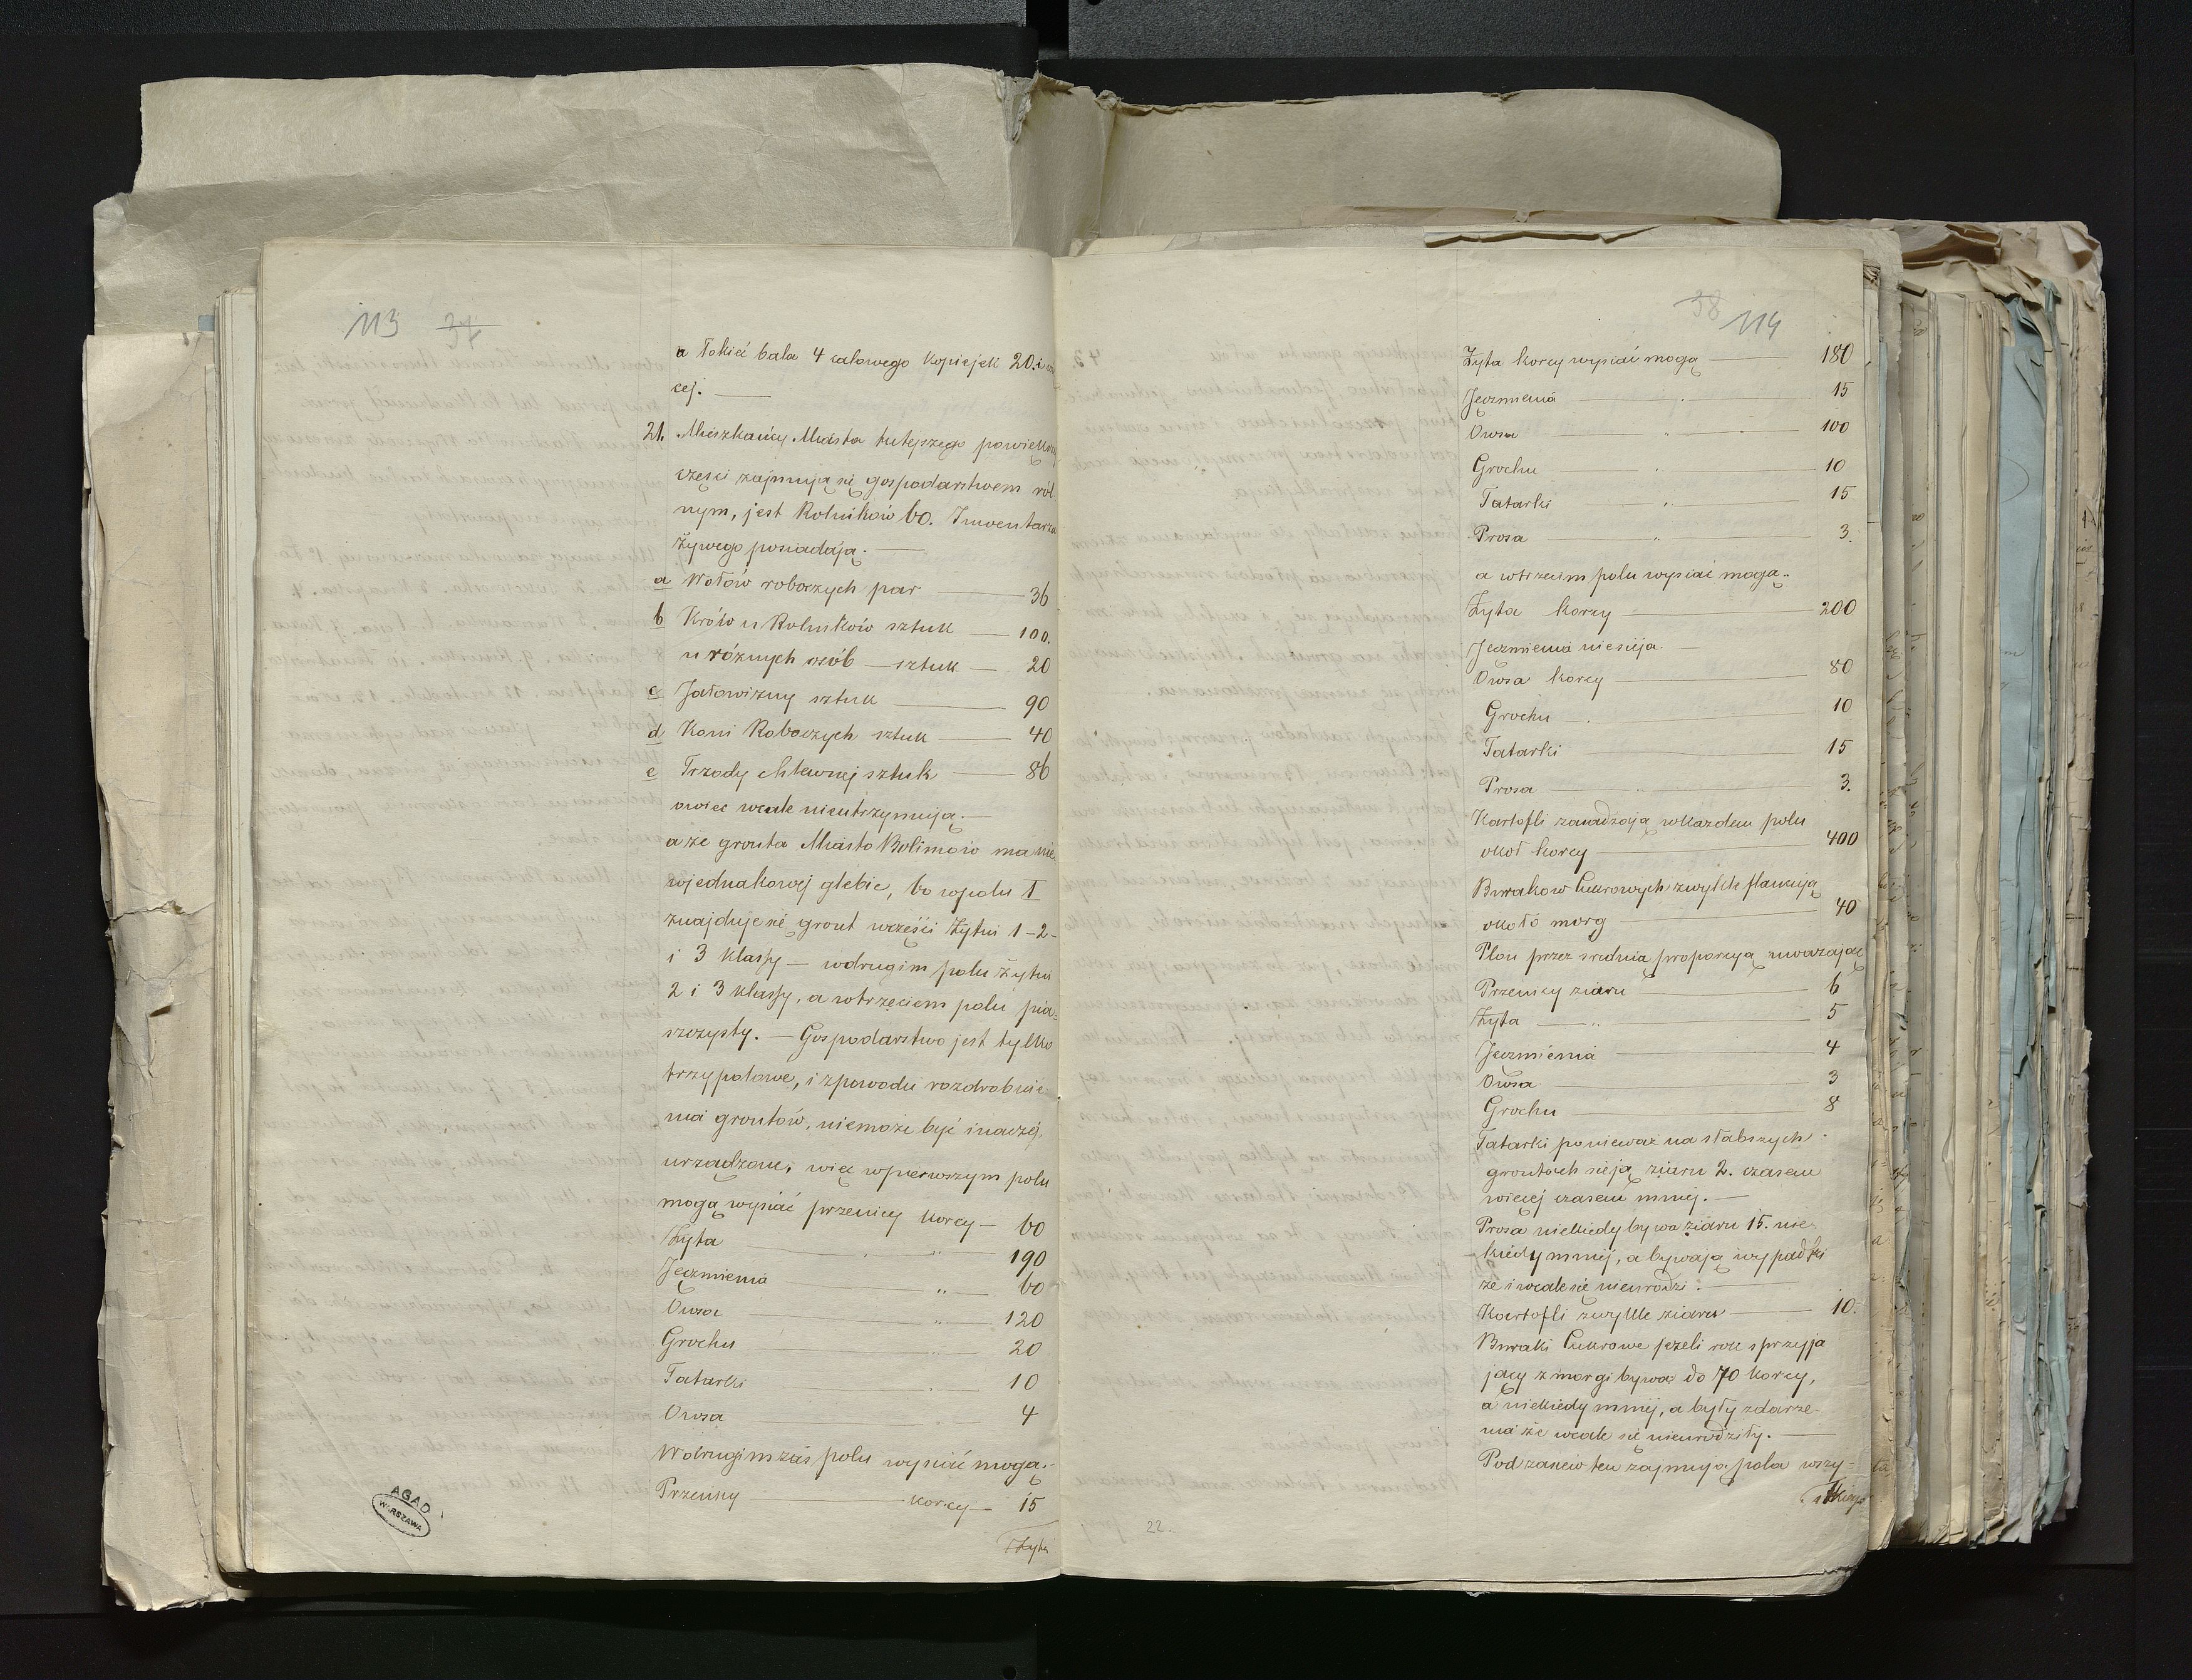 113 37
a Łokieć bala 4 calowego kopiejek 20. i wię
cej. —
21. Mieszkańcy Miasta tutejszego powiększej
części zajmują się gospodarstwem rol
nym, jest Rolników 60. Inwentarza
żywego posiadają. —
a Wołów roboczych par — 36
b Krów u Rolników sztuk — 100.
u różnych osób — sztuk — 20
c Jałowizny sztuk — 90
d Koni Roboczych sztuk — 40
e Trzody chlewnej sztuk — 86
owiec wcale nieutrzymują. —
a że grunta Miasto Bolimów ma nie
wjednakowej glebie, bo wpolu I
znajduje się gront wczęści żytni 1-2-
i 3 klassy — wdrugim polu żytni
2 i 3 klassy, a wtrzeciem polu pia-
szczysty. — Gospodarstwo jest tylko
trzypolowe, i zpowodu rozdrobnie
nia grontów, niemoże być inaczéj
urządzone, więc wpierwszym polu
mogą wysiać pszenicy korcy — 60
Żyta — " — 190
Jęczmienia — " — 60
Owsa — " — 120
Grochu — " — 20
Tatarki — 10
Owsa — 4
Wdrugim zaś polu wysiać mogą.
Przenicy — korcy — 15
Żyta
AGAD
WARSZAWA
38 114
Żyta korcy wysiać mogą — 180
Jęczmienia — 15
Owsa — " — 100
Grochu — " — 10
Tatarki — " — 15
Prosa — " — 3.
a wtrzecim polu wysiać mogą.
Żyta korcy — 200
Jęczmienia niesieją. —
Owsa korcy — 80
Grochu — 10
Tatarki — 15
Prosa — 3.
Kartofli zasadzają wkażdem polu
okoł korcy — 400
Buraków Cukrowych zwykle flancują
około morg — 40
Plon przez srednia proporcyą uważając
Przenicy ziarn — 6
Żyta — " — 5
Jęczmienia — 4
Owsa — 3
Grochu — 8
Tatarki ponieważ na słabszych
grontach sieją ziarn 2. czasem
więcej czasem mniej. —
Prosa niekiedy bywa ziarn 15. nie
kiedy mniej, a bywają wypadki
że i wcale się nieurodzi. —
Kartofli zwykle ziarn — 10.
Buraki Cukrowe jeżeli rok sprzyja
jący z morgi bywa do 70 korcy,
a niekiedy mniej, a były zdarze
nia że wcale się nieurodziły. —
Pod zasiew ten zajmują pola wszy-
stkiego
22.